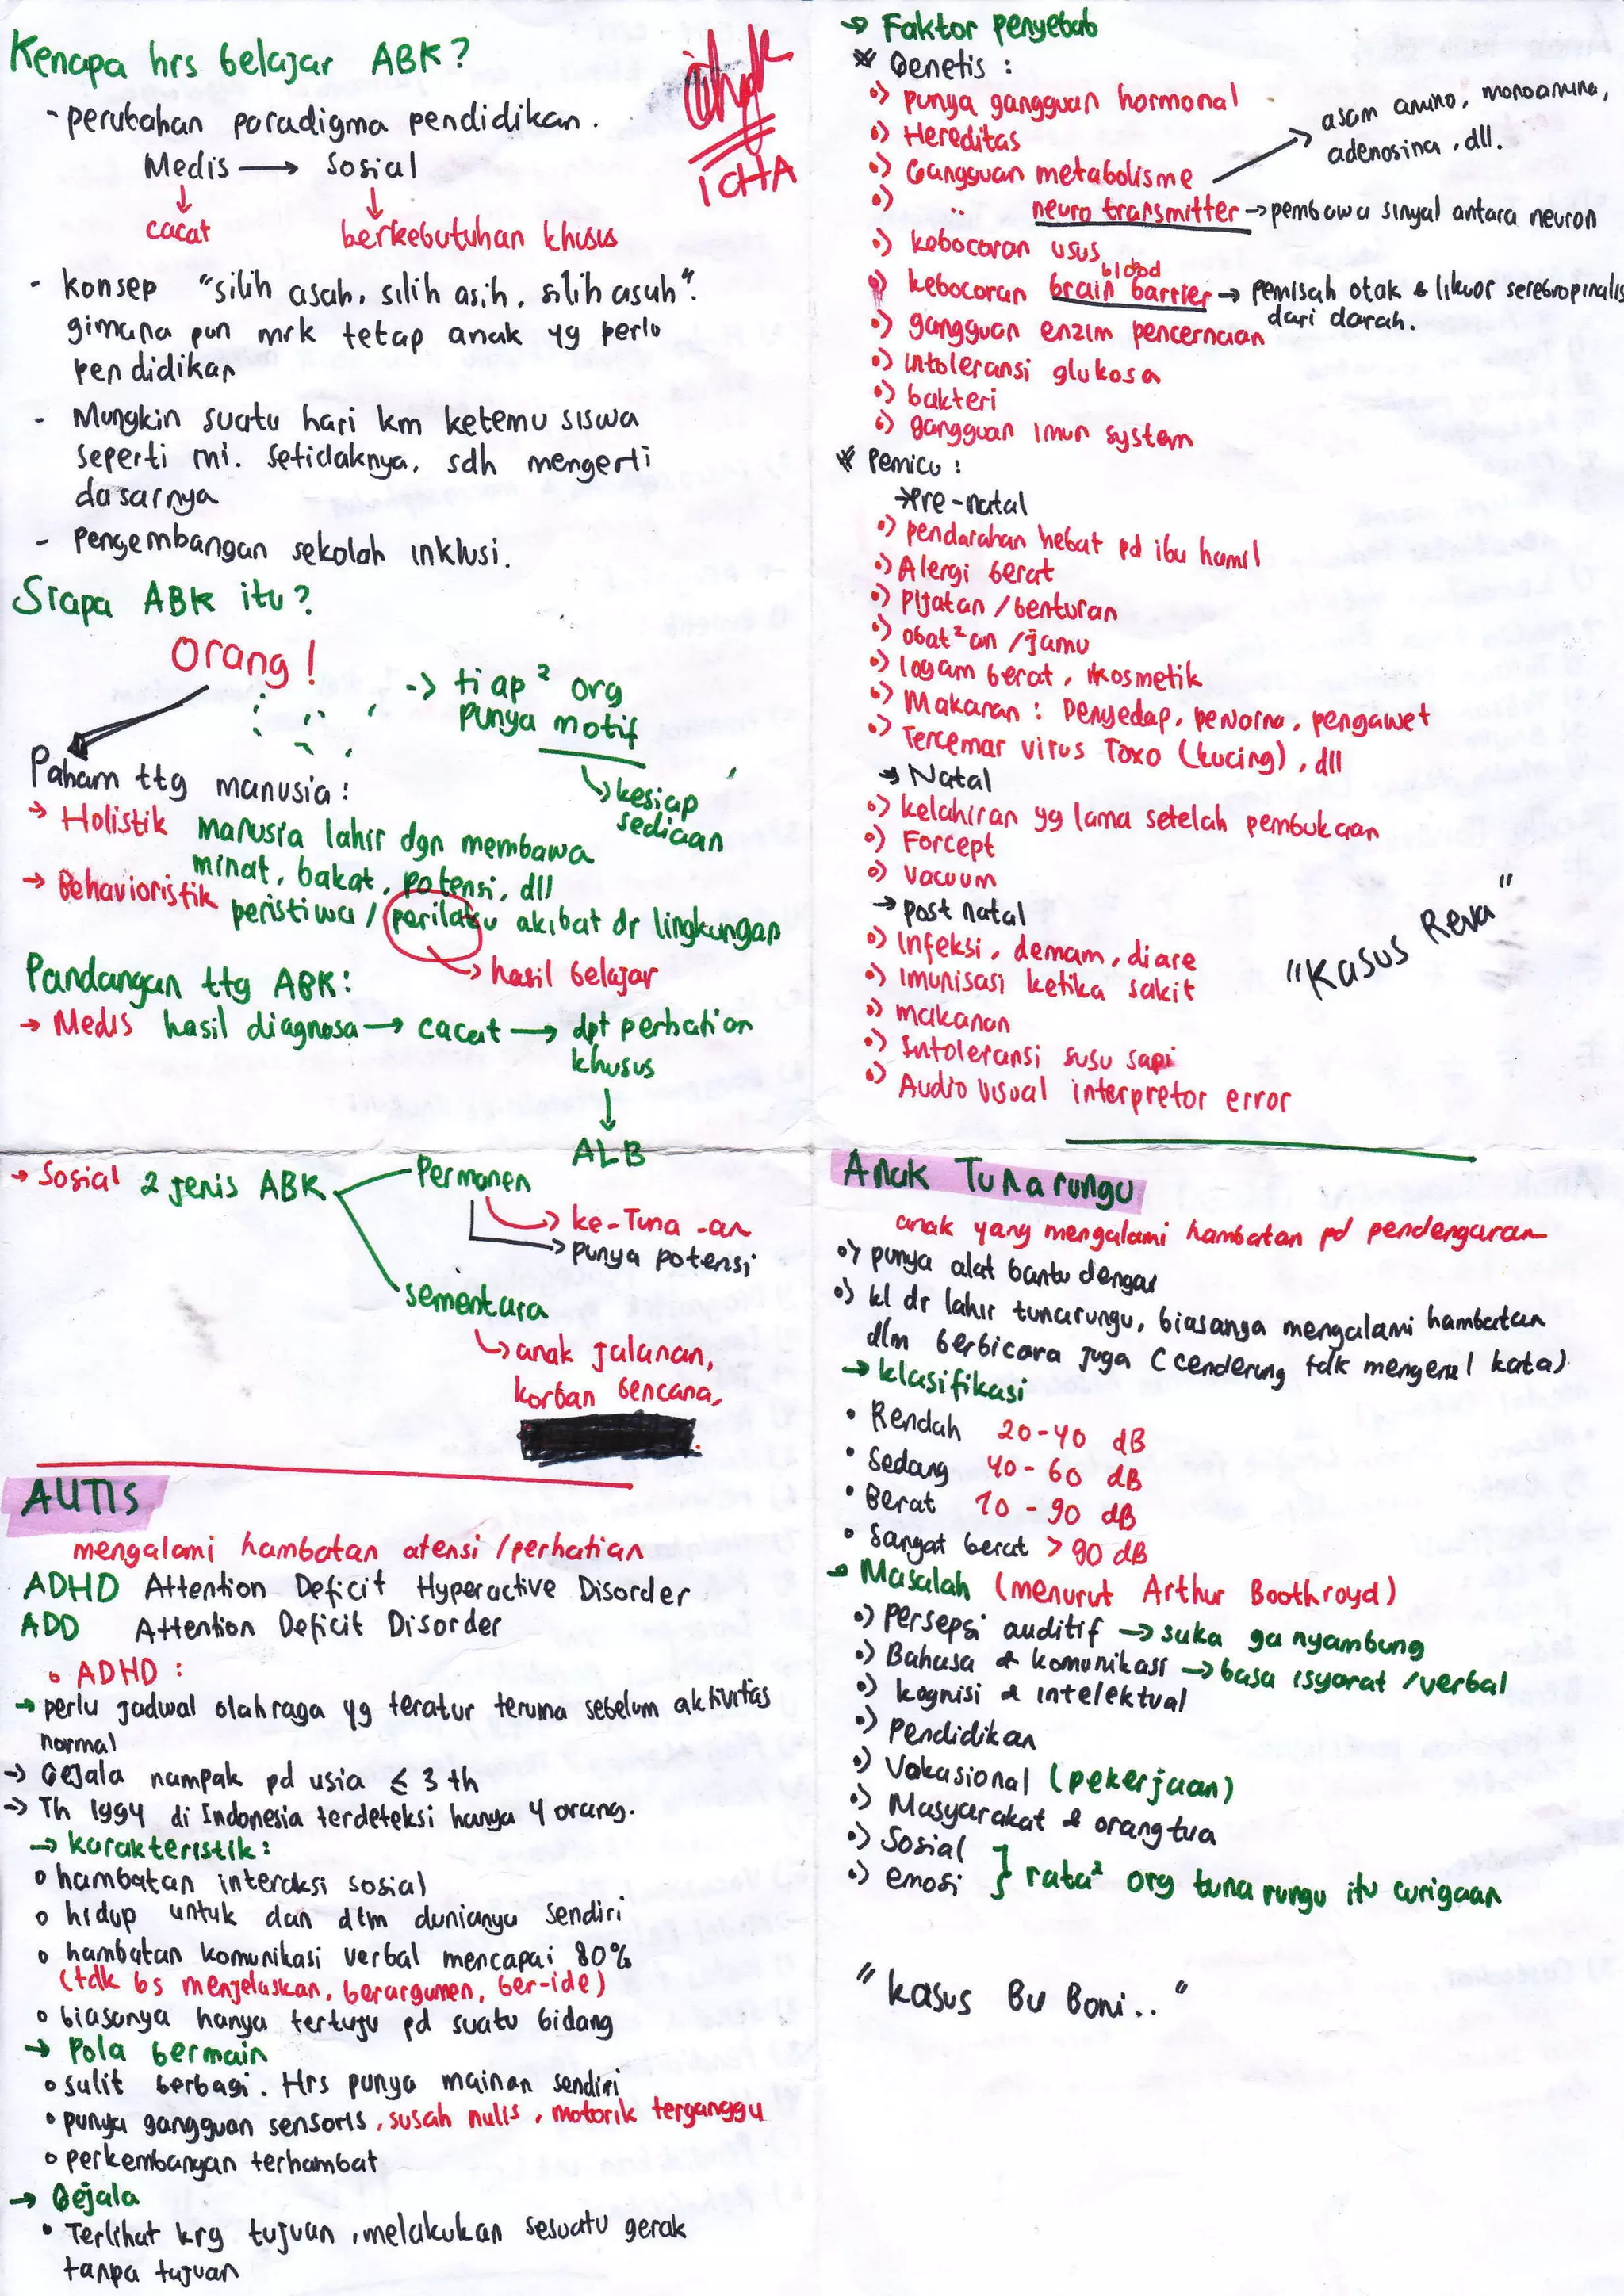 Kenapa hrs belajar ABK?
- perubahan paradigma pendidikan.
Medis → Sosial
cacat
berkebutuhan khusus
- konsep "silih asah, silih asih, silih asuh".
gimana pun mrk tetap anak yg perlu
pendidikan
- Mungkin suatu hari km ketemu siswa
seperti ini. Setidaknya, sdh mengerti
dasarnya
- Pengembangan sekolah inklusi.
ICHA
Siapa ABK itu?
Orang!
-> tiap² org
punya motif
↳ kesiap
sediaan
Paham ttg manusia:
→ Holistik manusia lahir dgn membawa
minat, bakat, potensi, dll
→ Behavioristik peristiwa / perilaku akibat dr lingkungan
→ hasil belajar
Pandangan ttg ABK:
→ Medis hasil diagnosa → cacat → dpt perhatian
khusus
ALB
→ Sosial 2 jenis ABK
Permanen
→ ke-Tuna-an
→ punya potensi
sementara
↳ anak jalanan,
korban bencana,
AUTIS
mengalami hambatan atensi / perhatian
ADHD Attention Deficit Hyperactive Disorder
ADD Attention Deficit Disorder
o ADHD :
→ perlu jadwal olahraga yg teratur teruma sebelum aktivitas
normal
→ Gejala nampak pd usia ≤ 3 th
→ Th 1994 di Indonesia terdeteksi hanya 4 orang.
→ karakteristik:
o hambatan interaksi sosial
o hidup untuk dan dlm dunianya sendiri
o hambatan komunikasi verbal mencapai 80%
(tdk bs menjelaskan, berargumen, ber-ide)
o biasanya hanya tertuju pd suatu bidang
→ Pola bermain
o sulit berbagi. Hrs punya mainan sendiri
• punya gangguan sensoris, susah nulis, motorik terganggu
o perkembangan terhambat
→ Gejala
• Terlihat krg tujuan, melakukan sesuatu gerak
tanpa tujuan
→ Faktor penyebab
* Genetis :
•) punya gangguan hormonal
•) Hereditas
•) Gangguan metabolisme
asam amino, monoamina,
adenosina, dll.
•) " neuro transmitter → pembawa sinyal antara neuron
•) kebocoran usus
•) kebocoran brain blood barrier → pemisah otak & likuor serebropinalis
dari darah.
•) gangguan enzim pencernaan
•) intoleransi glukosa
•) bakteri
•) gangguan imun system
* Pemicu :
→ Pre-natal
•) pendarahan hebat pd ibu hamil
•) Alergi berat
•) Pijatan / benturan
•) obat²an / jamu
•) logam berat, kosmetik
•) Makanan : Penyedap, pewarna, pengawet
•) Tercemar virus Toxo (kucing), dll
→ Natal
•) kelahiran yg lama setelah pembukaan
•) Forcept
•) Vacuum
→ post natal
•) Infeksi, demam, diare
•) Imunisasi ketika sakit
•) makanan
•) Intoleransi susu sapi
•) Audio visual interpretor error
"Kasus Reva"
Anak Tunarungu
anak yang mengalami hambatan pd pendengaran
•) punya alat bantu dengar
•) kl dr lahir tunarungu, biasanya mengalami hambatan
dlm berbicara juga (cenderung tdk mengenal kata)
→ klasifikasi
• Rendah 20-40 dB
• Sedang 40-60 dB
• Berat 70-90 dB
• Sangat berat > 90 dB
→ Masalah (menurut Arthur Boothroyd)
•) persepsi auditif → suka ga nyambung
•) Bahasa & komunikasi → basa isyarat / verbal
•) kognisi & intelektual
•) Pendidikan
•) Vokasional (pekerjaan)
•) Masyarakat & orangtua
•) Sosial
•) emosi } rata² org tuna rungu itu curigaan
"kasus Bu Boni.."